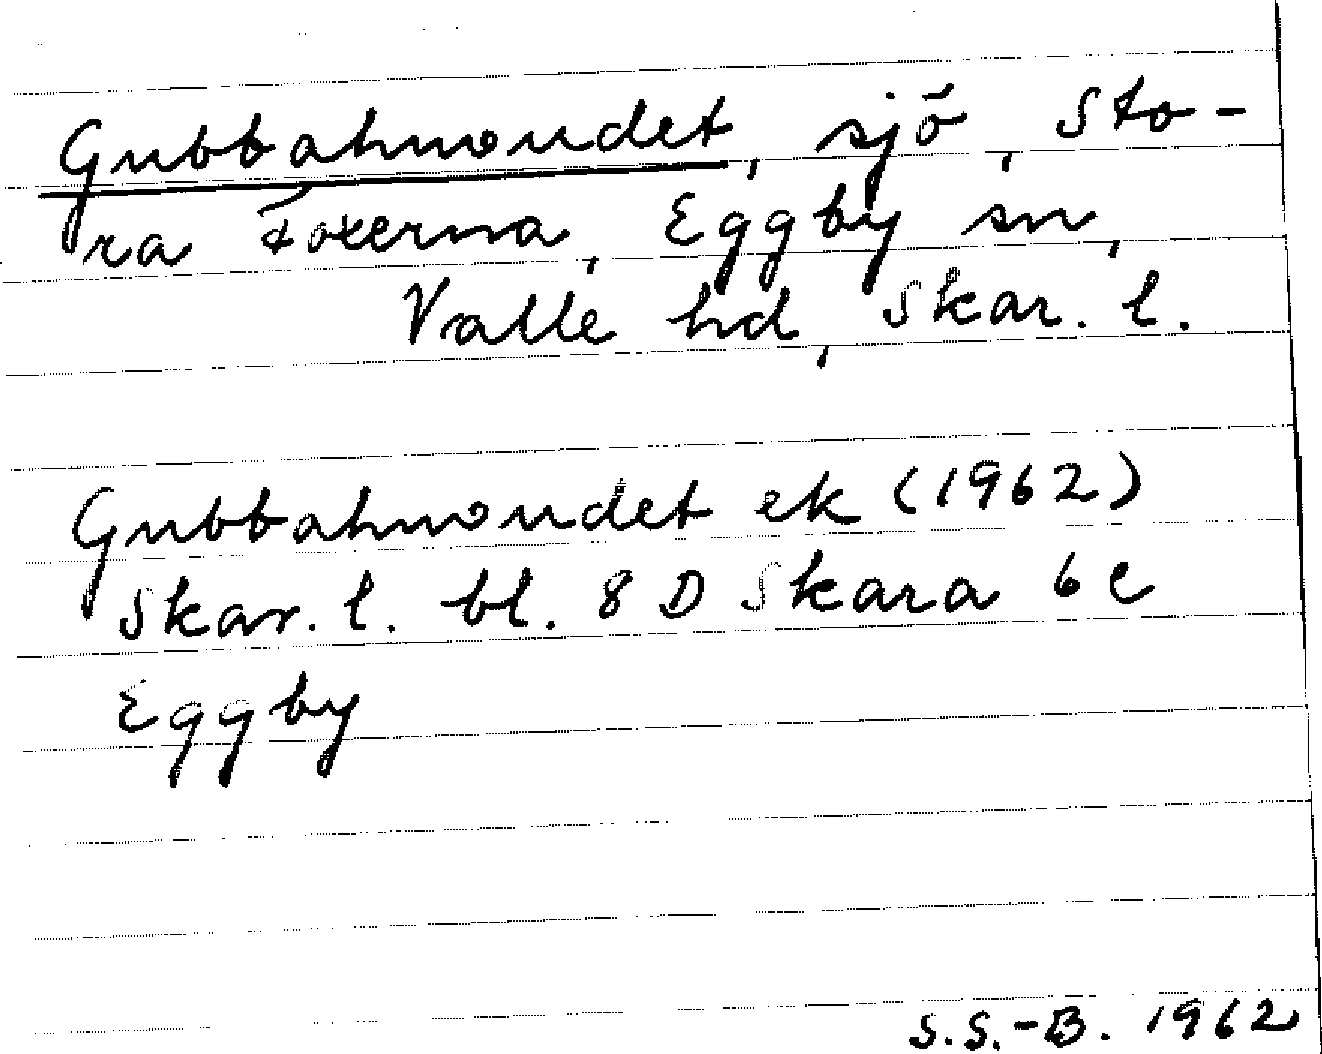 Gubbahuvudet, sjö, Sto-
ra Foxerna, Eggby sn,
Valle hd, Skar. l.
Gubbahuvudet ek (1962)
Skar. l. bl. 8 D Skara 6 e
Eggby
S.S.-B. 1962